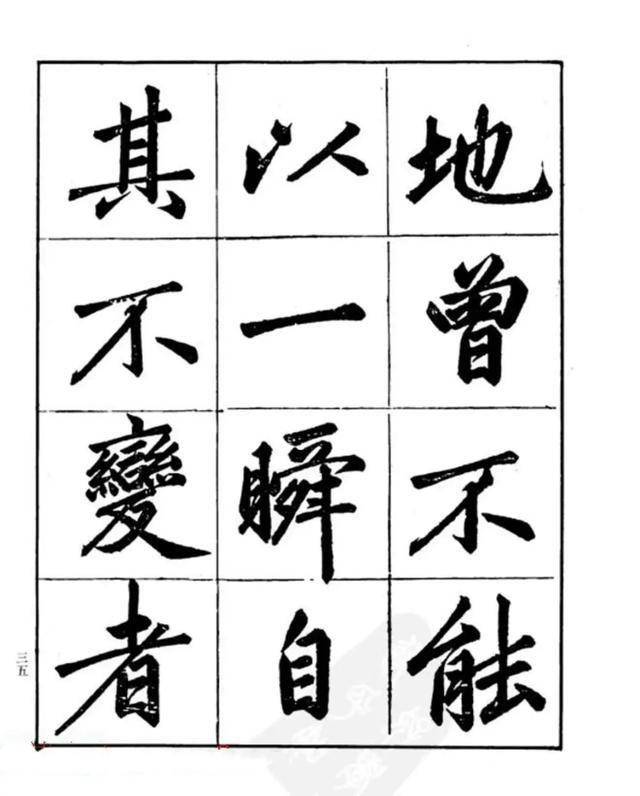 地曾不能
以一瞬自
其不變者
三五